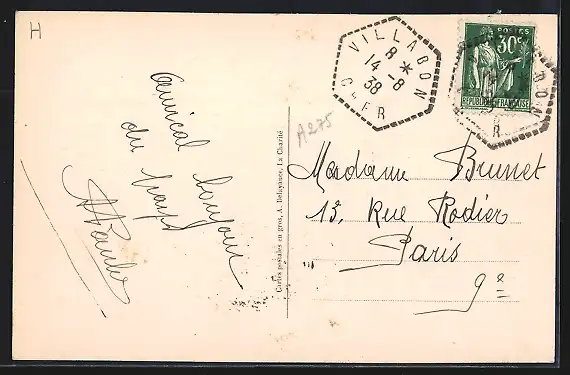 H
VILLABON
8 *
14 - 8
38
CHER
POSTES
30c
REPUBLIQUE FRANÇAISE
A275
Amical bonjour
du pays
Cartes postales en gros, A. Delayance, La Charité
Madame Brunet
13, Rue Rodier
Paris
9e